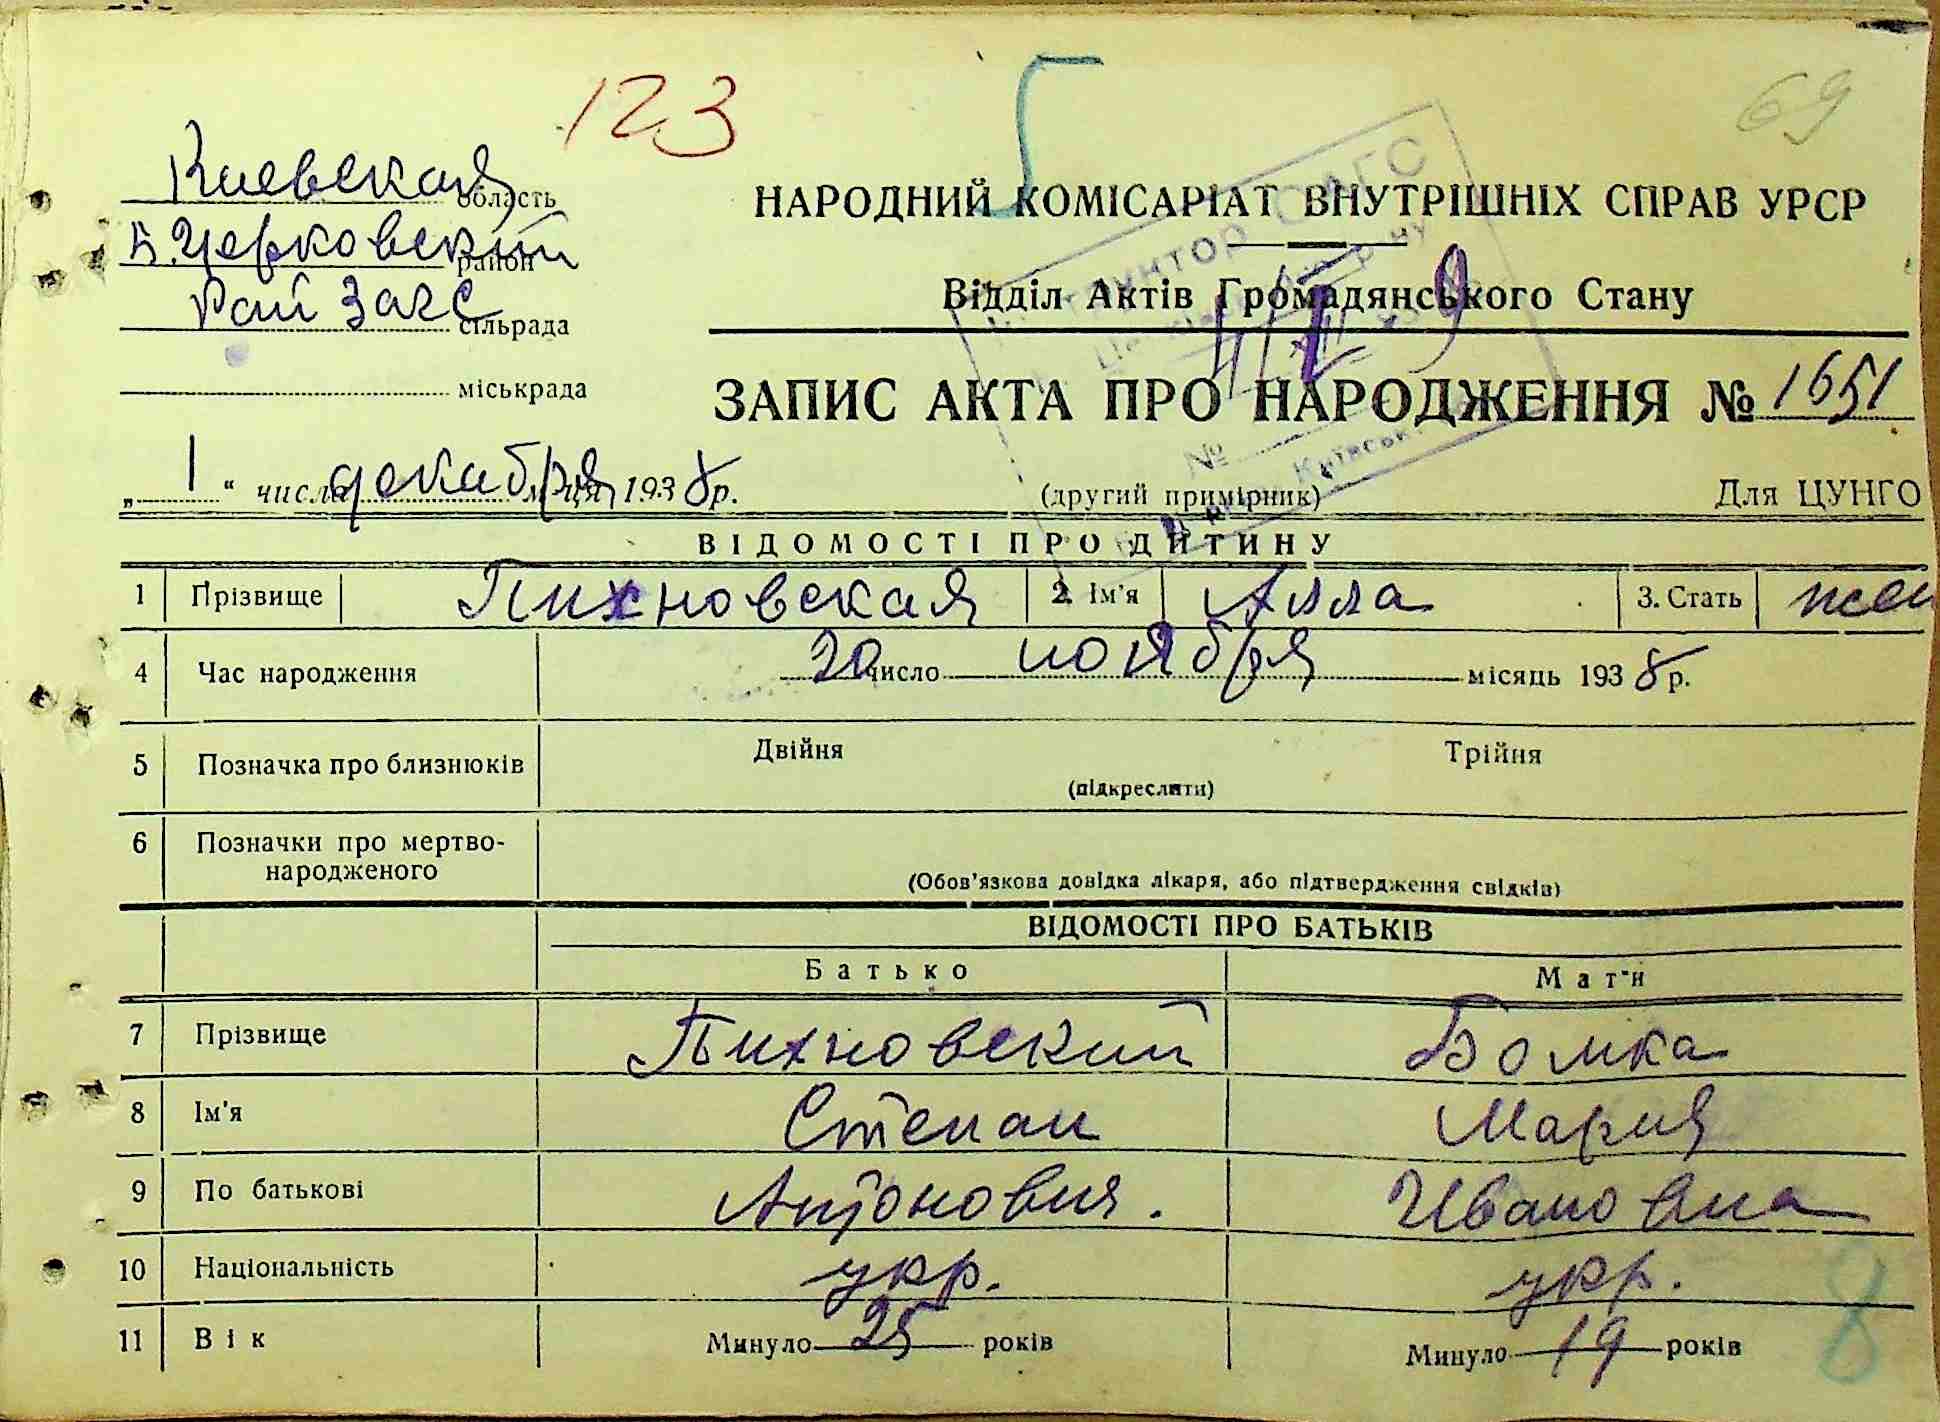 123
5
69
Киевская область
Б.Церковский район
Рай Загс сільрада
міськрада
НАРОДНИЙ КОМІСАРІАТ ВНУТРІШНІХ СПРАВ УРСР
Відділ Актів Громадянського Стану
ЗАПИС АКТА ПРО НАРОДЖЕННЯ № 1651
„ 1 “ числа декабря м-ця 1938 р.
(другий примірник)
Для ЦУНГО
ВІДОМОСТІ ПРО ДИТИНУ
1 Прізвище Пихновская 2. Ім'я Алла 3. Стать жен
4 Час народження 20 число ноября місяць 1938 р.
5 Позначка про близнюків Двійня Трійня
(підкреслити)
6 Позначки про мертво-
народженого
(Обов'язкова довідка лікаря, або підтвердження свідків)
ВІДОМОСТІ ПРО БАТЬКІВ
Батько Мати
7 Прізвище Пихновский Бомка
8 Ім'я Степан Мария
9 По батькові Антонович. Ивановна
10 Національність укр. укр.
11 Вік Минуло 25 років Минуло 19 років
8